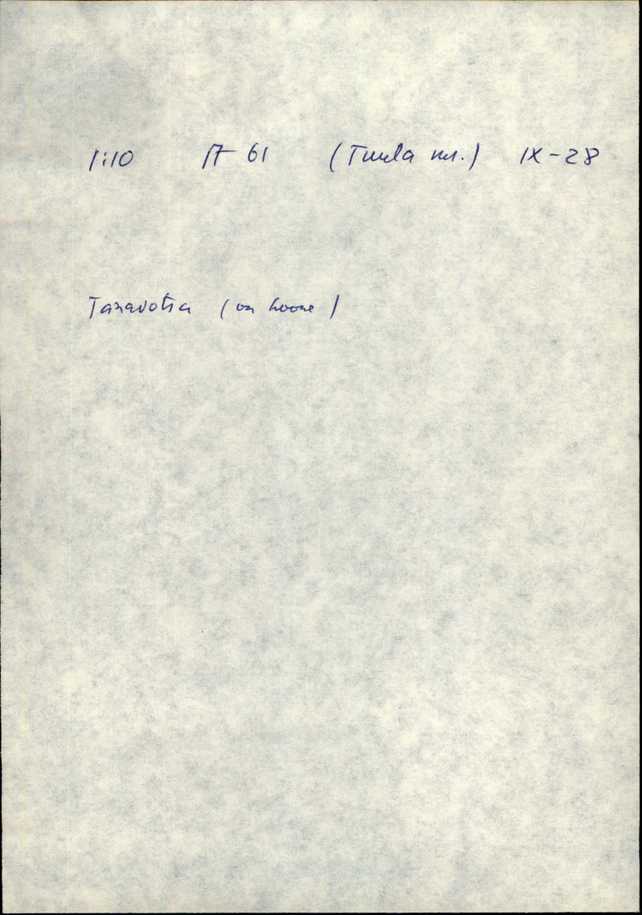 1:10 17 61 (Tuula nr.) IX-28
Taravotia (on hoone)